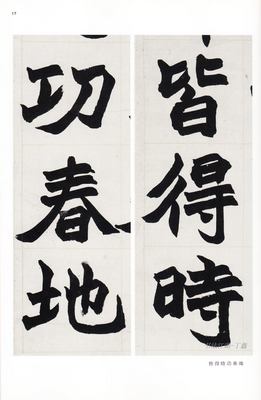 17
皆得時
功春地
皆得時功春地